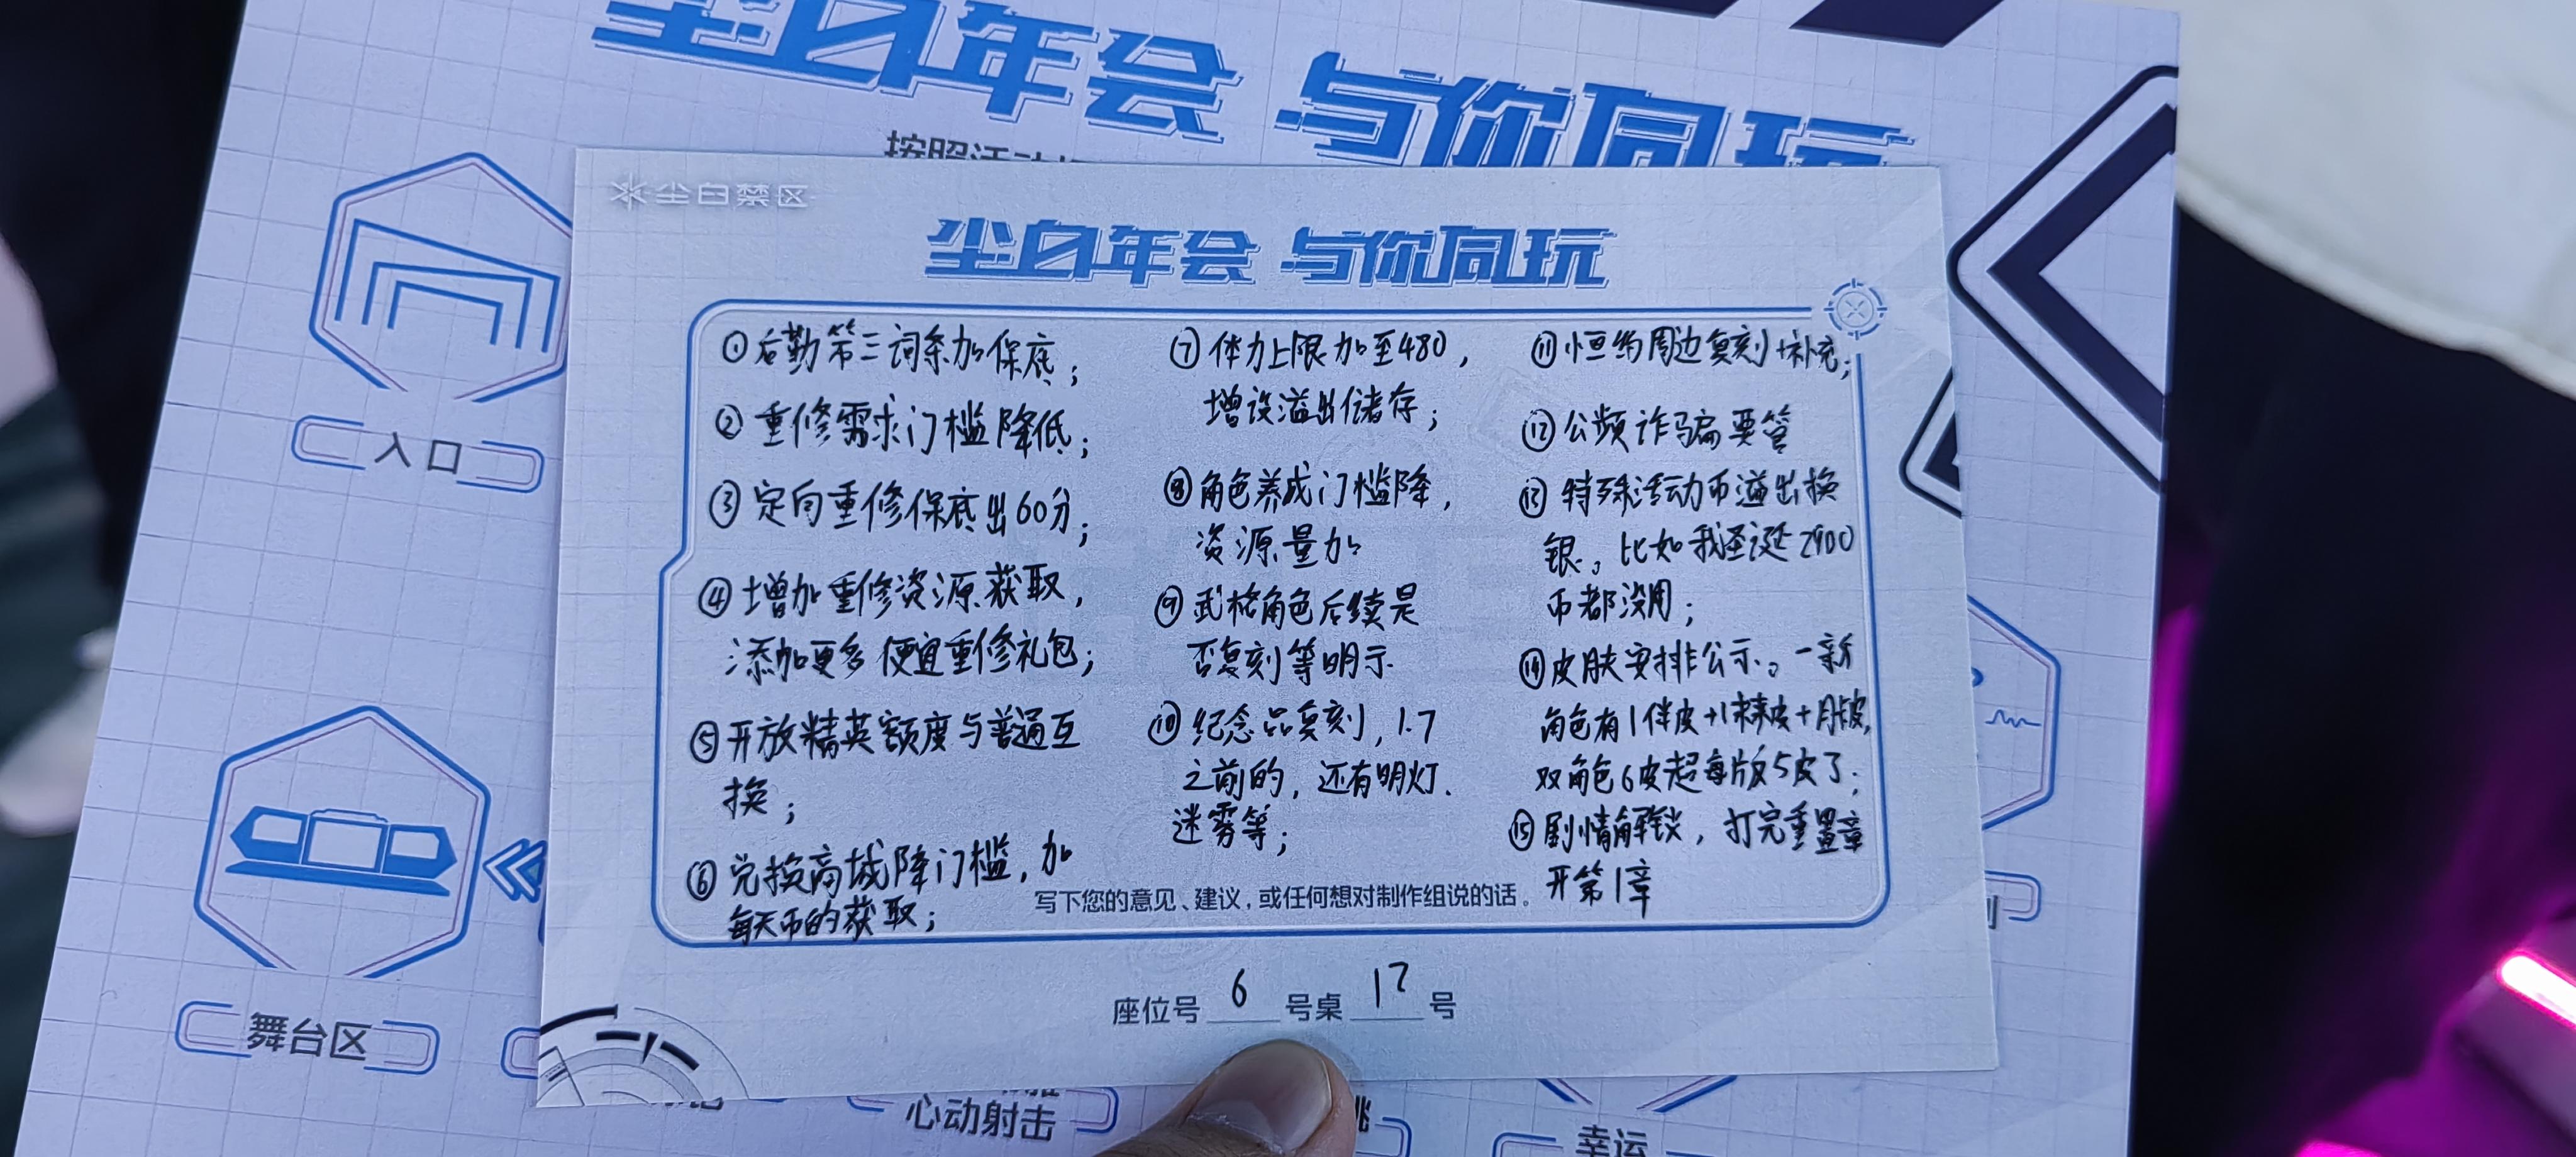 尘白年会 与你同玩
入口
舞台区
心动射击
幸运
尘白禁区
尘白年会 与你同玩
①后勤第三词条加保底;
②重修需求门槛降低;
③定向重修保底出60分;
④增加重修资源获取,
添加更多便宜重修礼包;
⑤开放精英额度与普通互
换;
⑥兑换商城降门槛,加
每天币的获取;
⑦体力上限加至480,
增设溢出储存;
⑧角色养成门槛降,
资源量加
⑨武格角色后续是
否复刻等明示.
⑩纪念品复刻,1.7
之前的,还有明灯.
迷雾等;
⑪恒约周边复刻+补充;
⑫公频诈骗要管
⑬特殊活动币溢出换
银。比如我圣诞2900
币都没用;
⑭皮肤安排公示。一新
角色有1伴皮+1未来皮+月皮,
双角色6皮超每版5皮了;
⑮剧情解锁,打完重置章
开第1章
写下您的意见、建议,或任何想对制作组说的话。
座位号 6 号桌 17 号